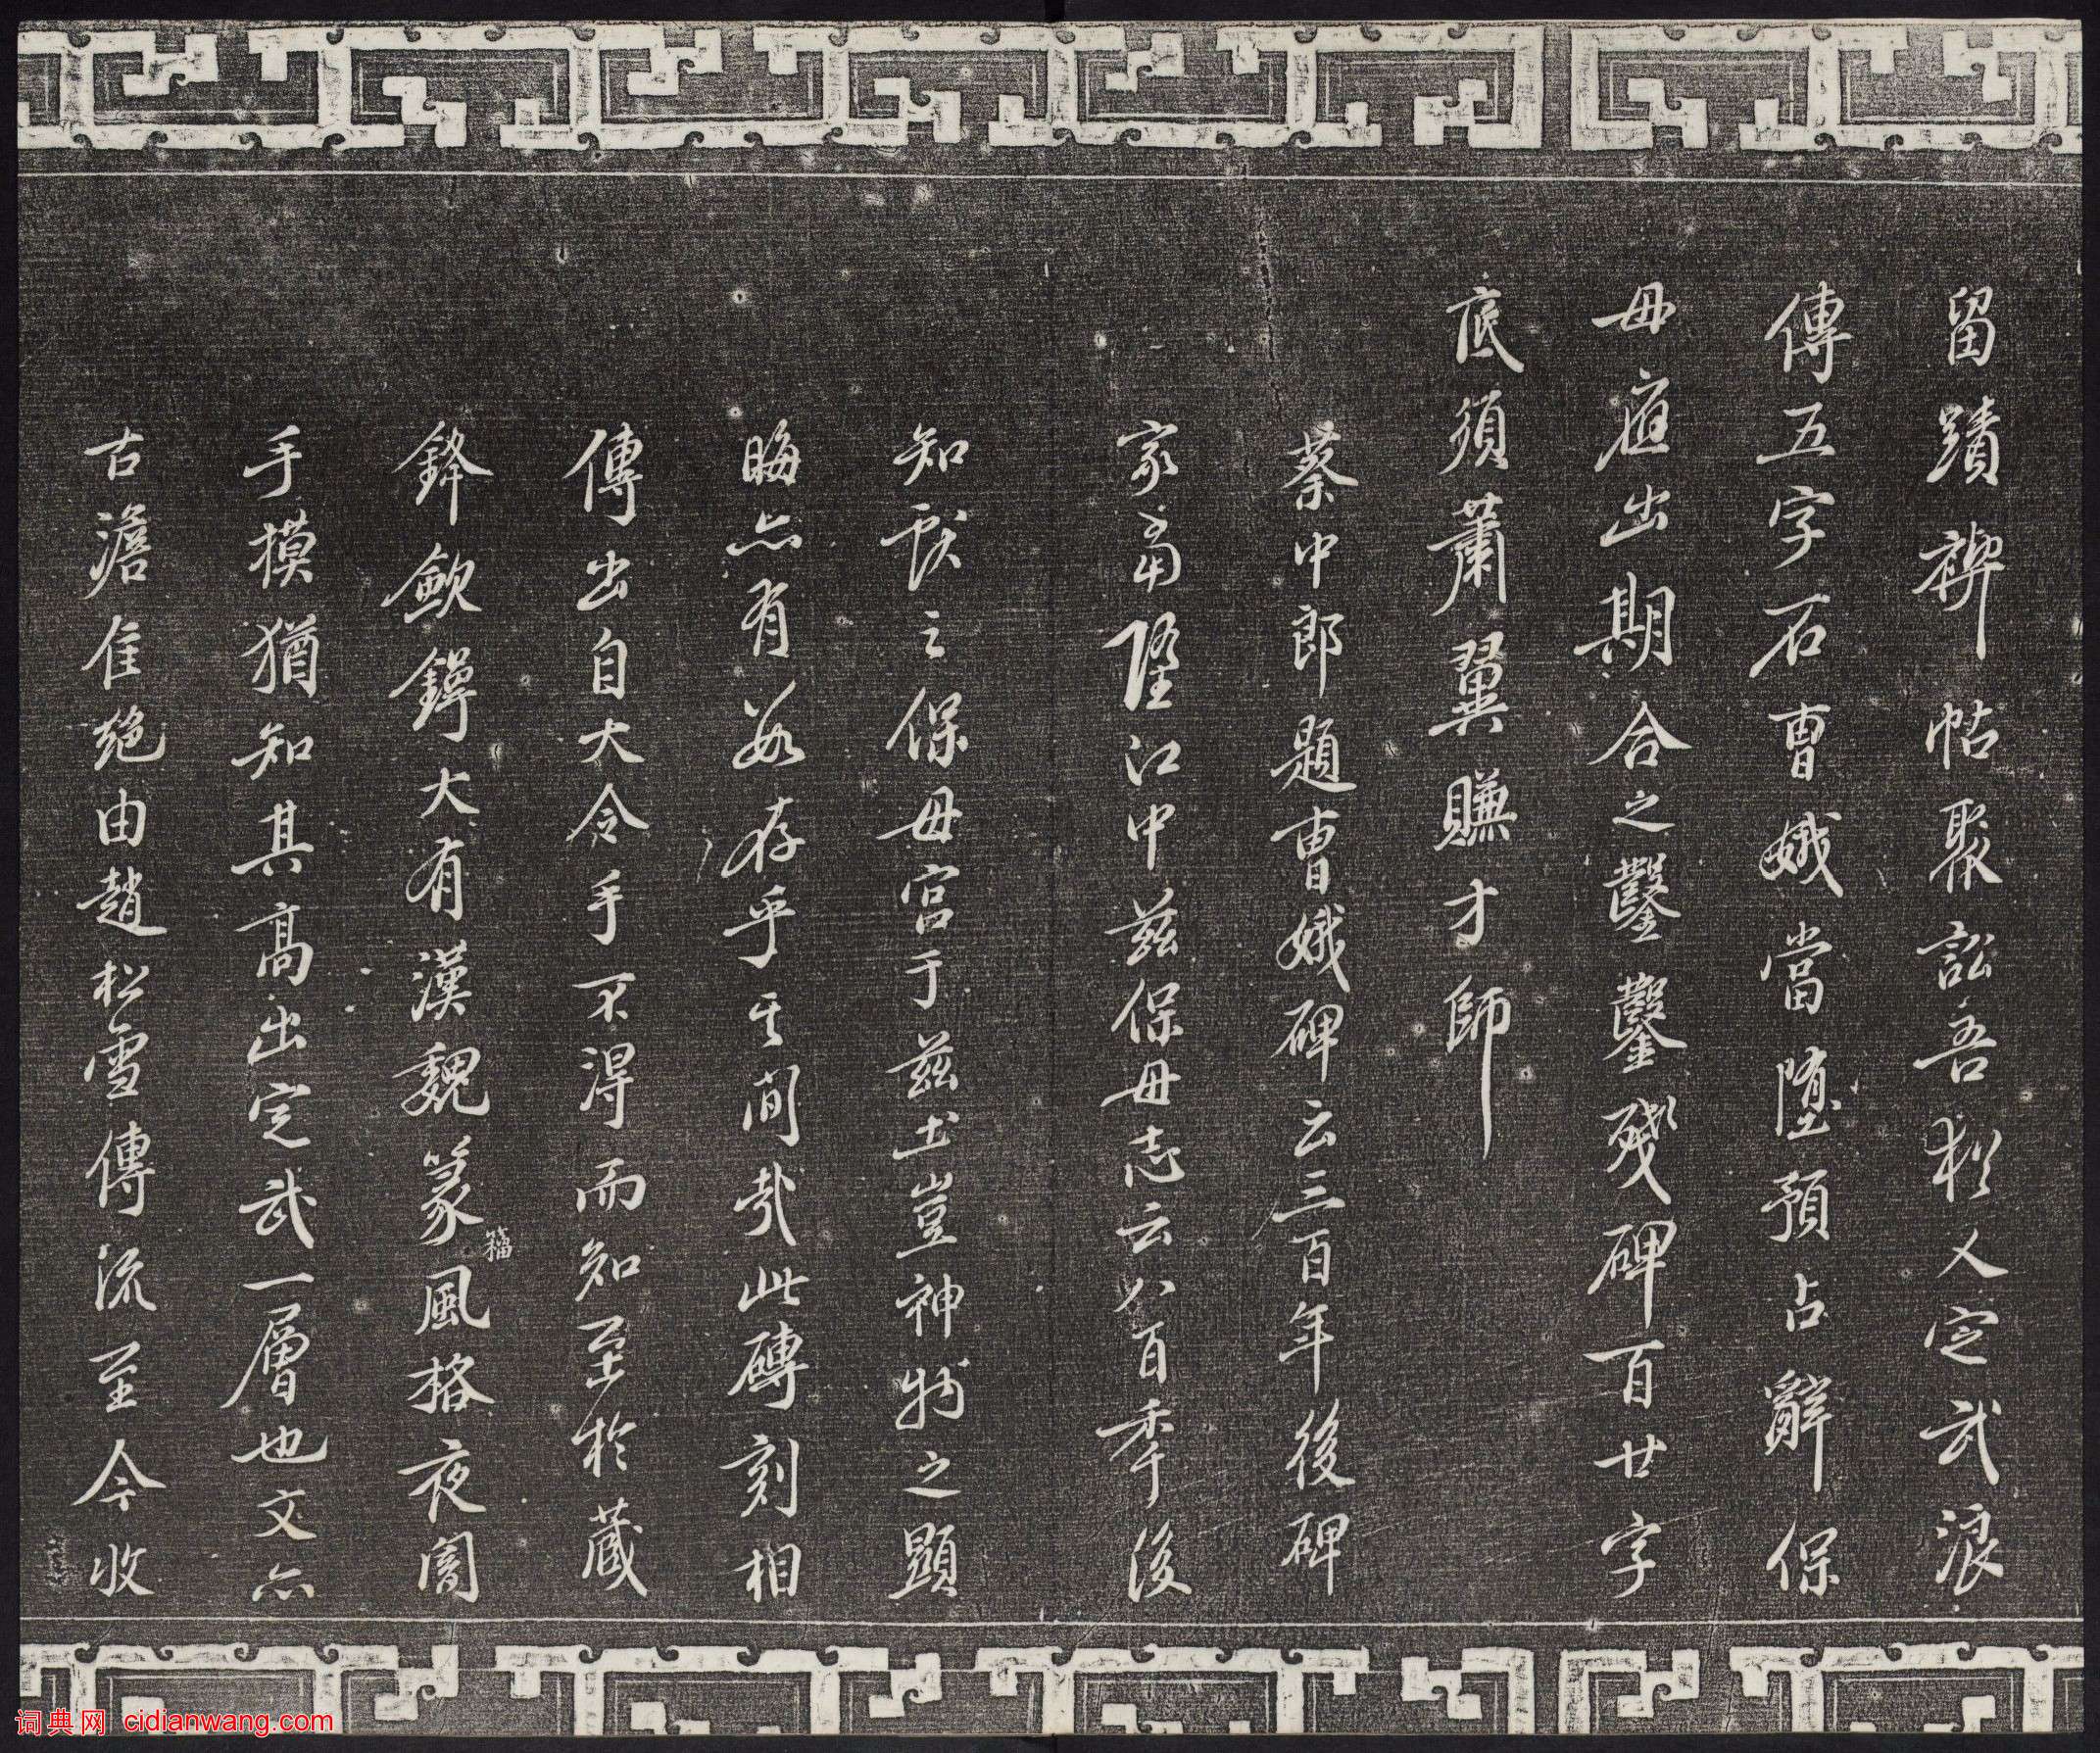 留蹟禊帖聚訟吾於人定武浪
傳五字石曹娥當墮預占辭保
母寔出期合之鑿鑿殘碑百廿字
底須蕭翼賺才師
蔡中郎題曹娥碑云三百年後碑
冢當墮江中茲保母志云八百季後
知獻之保母宮于茲土豈神物之顯
晦亦有數存乎其間哉此磚刻相
傳出自大令手不得而知至於藏
鋒斂鍔大有漢魏篆籀風格夜闇
手摸猶知其高出定武一層也文亦
古澹佳絕由趙松雪傳流至今收
词典网 cidianwang.com